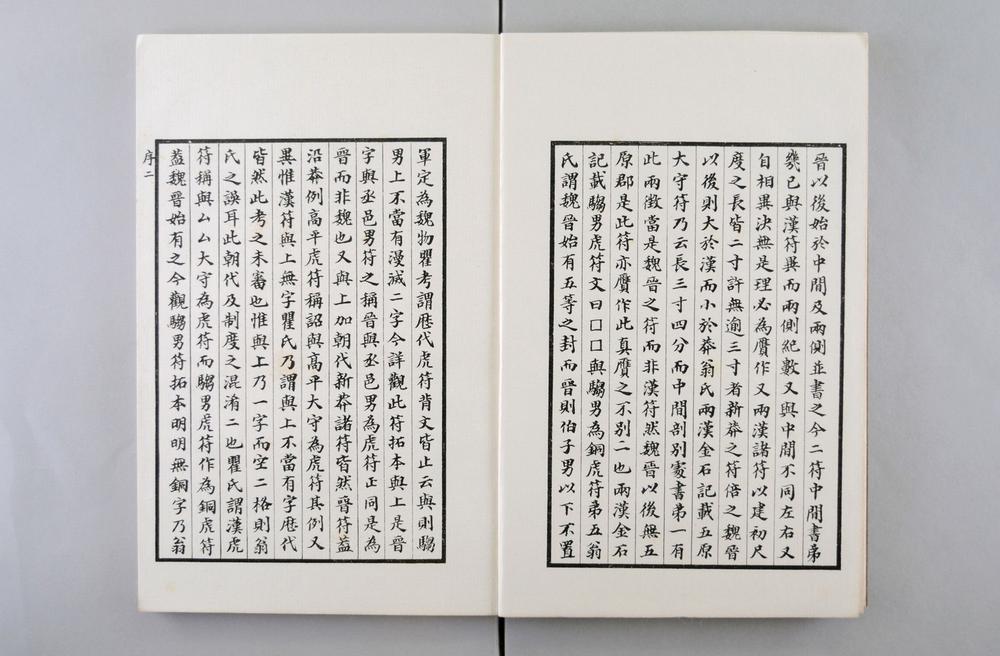 晉以後始於中間及兩側並書之今二符中間書弟
幾已與漢符異而兩側紀數又與中間不同左右又
自相異決無是理必為贋作又兩漢諸符以建初尺
度之長皆二寸許無逾三寸者新莽之符倍之魏晉
以後則大於漢而小於莽翁氏兩漢金石記載五原
大守符乃云長三寸四分而中間剖別㝯書弟一有
此兩徵當是魏晉之符而非漢符然魏晉以後無五
原郡是此符亦贋作此真贋之不別二也兩漢金石
記載騶男虎符文曰囗囗與騶男為銅虎符弟五翁
氏謂魏晉始有五等之封而晉則伯子男以下不置
軍定為魏物瞿考謂歷代虎符背文皆止云與則騶
男上不當有漫滅二字今詳觀此符拓本與上是晉
字與丞邑男符之稱晉與丞邑男為虎符正同是為
晉而非魏也又與上加朝代新莽諸符皆然晉符蓋
沿莽例高平虎符稱詔與高平大守為虎符其例又
異惟漢符與上無字瞿氏乃謂與上不當有字歷代
皆然此考之未審也惟與上乃一字而空二格則翁
氏之誤耳此朝代及制度之混淆二也瞿氏謂漢虎
符稱與厶厶大守為虎符而騶男虎符作為銅虎符
蓋魏晉始有之今觀騶男符拓本明明無銅字乃翁
序二